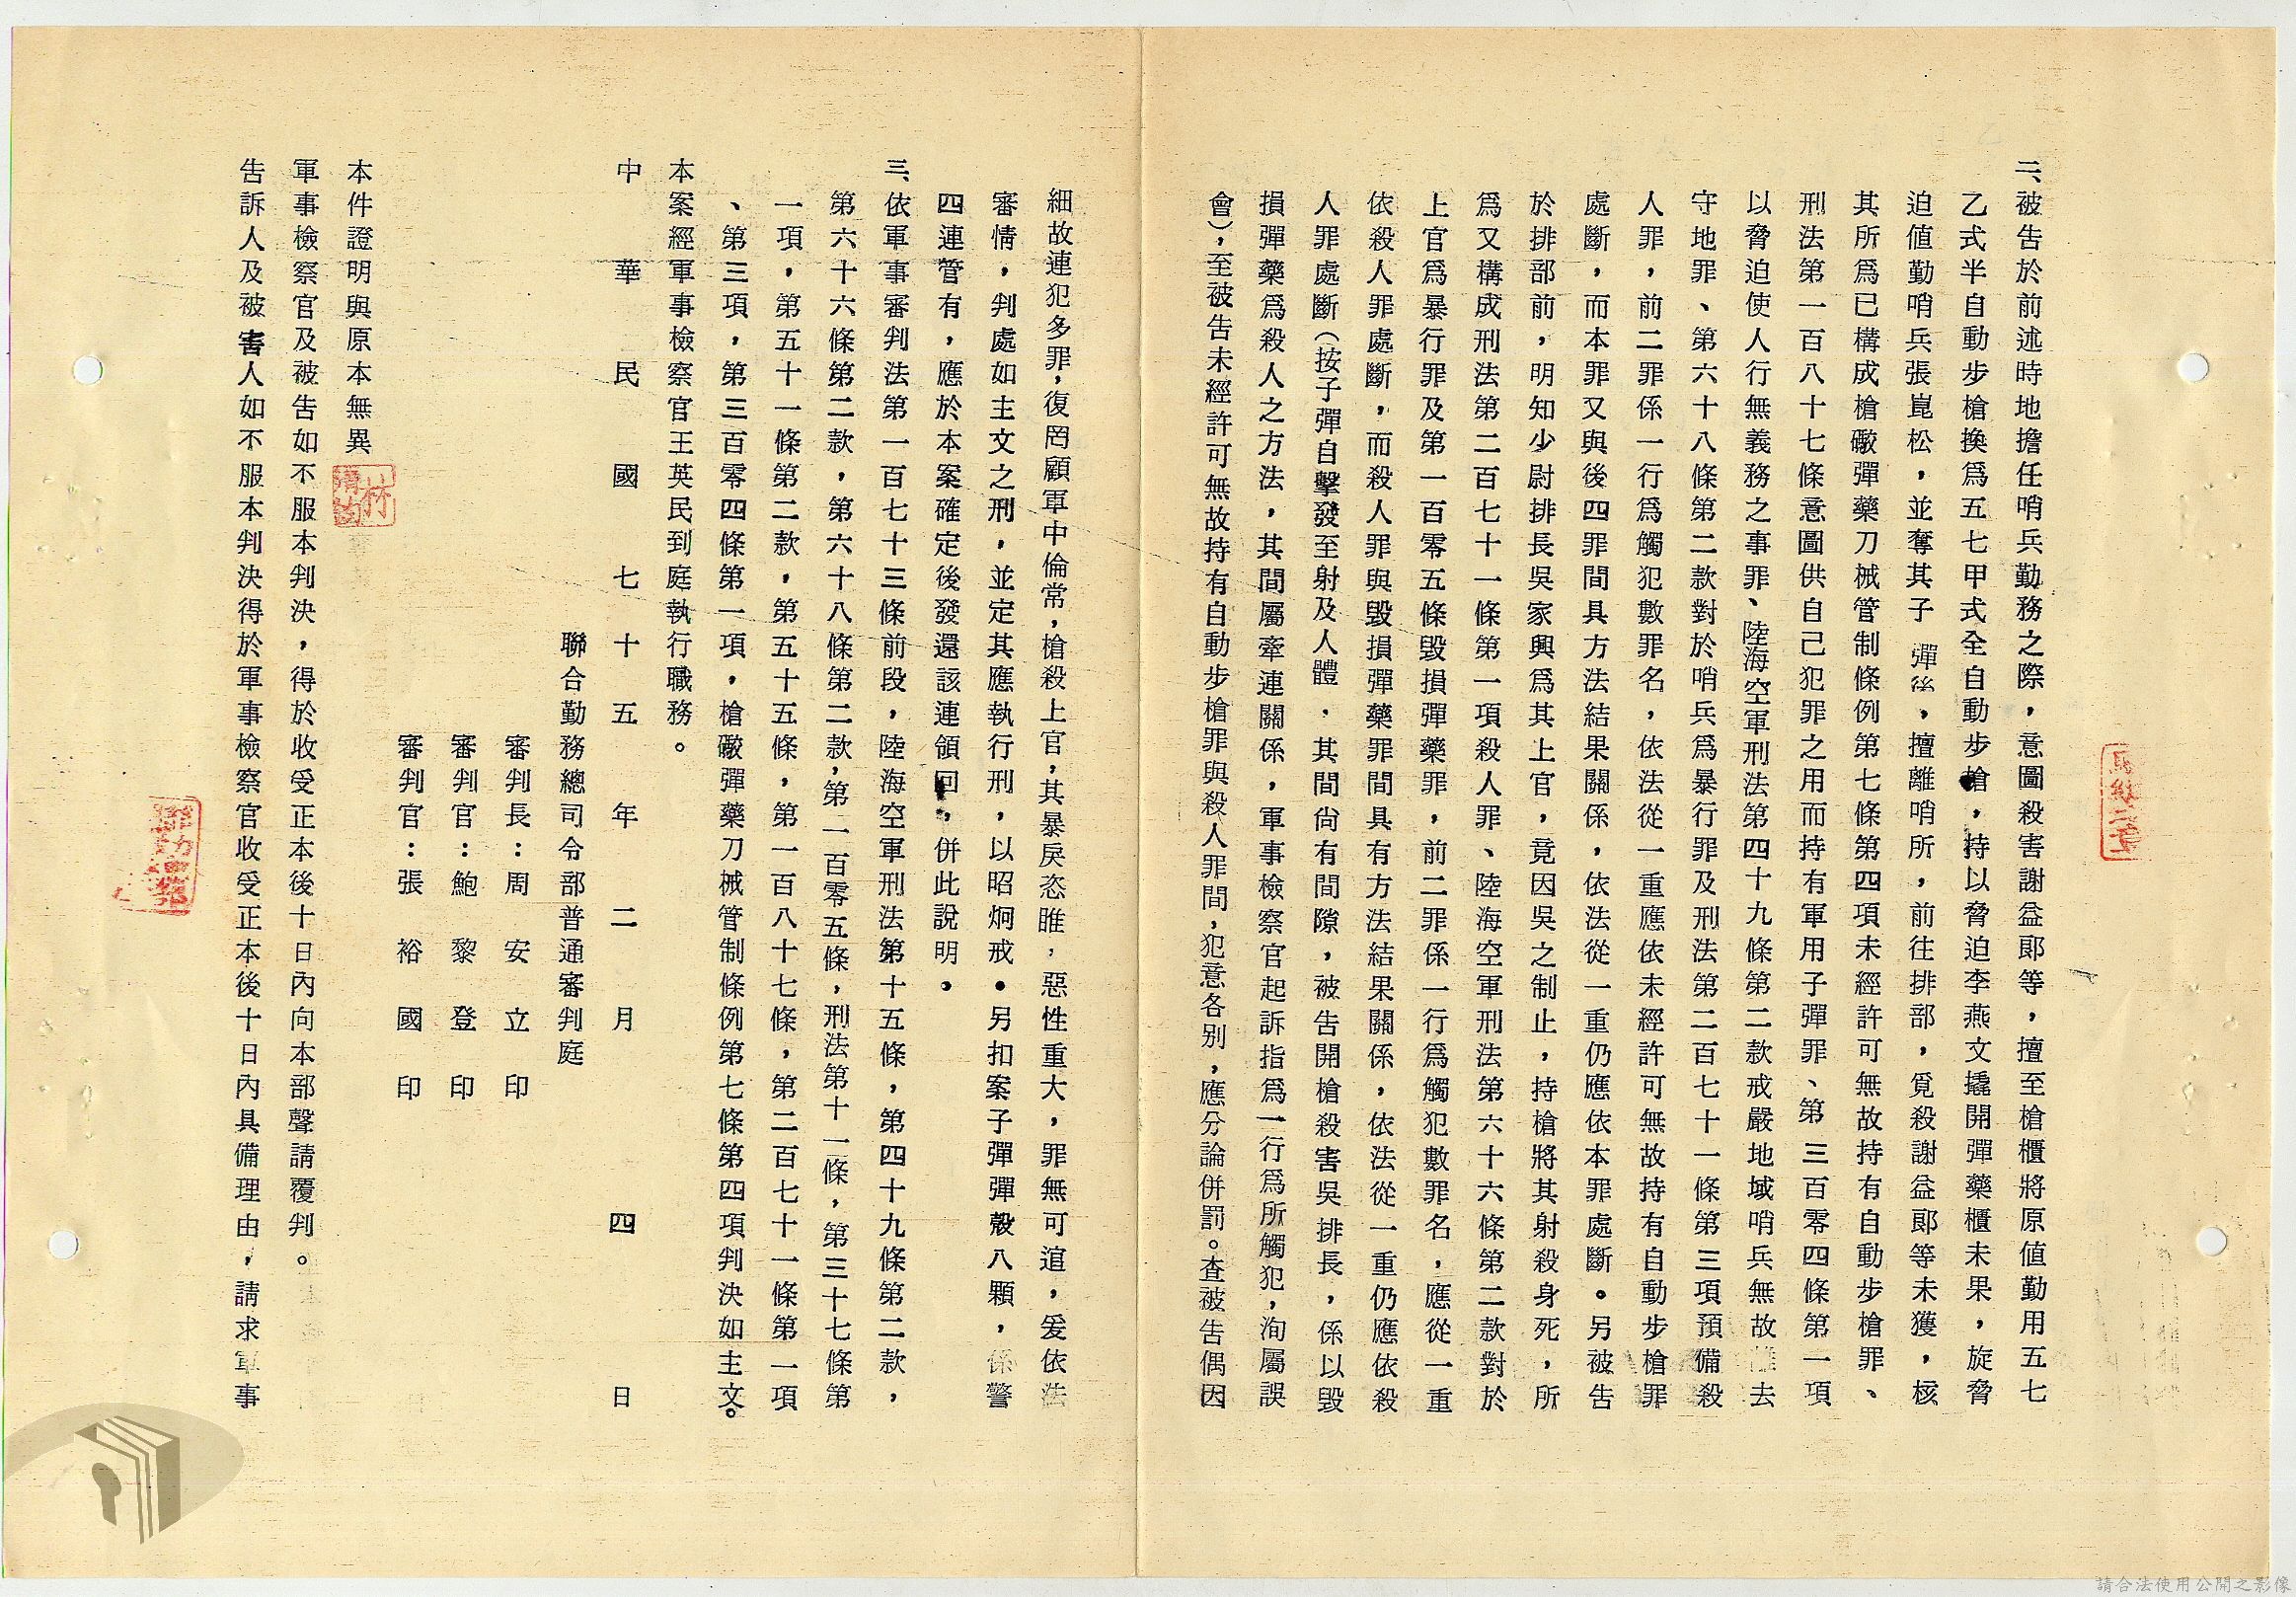 二、被告於前述時地擔任哨兵勤務之際，意圖殺害謝益郎等，擅至槍櫃將原值勤用五七
乙式半自動步槍換爲五七甲式全自動步槍，持以脅迫李燕文撬開彈藥櫃未果，旋脅
迫值勤哨兵張崑松，並奪其子彈後，擅離哨所，前往排部，覓殺謝益郎等未獲，核
其所爲已構成槍礮彈藥刀械管制條例第七條第四項未經許可無故持有自動步槍罪、
刑法第一百八十七條意圖供自己犯罪之用而持有軍用子彈罪、第三百零四條第一項
以脅迫使人行無義務之事罪、陸海空軍刑法第四十九條第二款戒嚴地域哨兵無故離去
守地罪、第六十八條第二款對於哨兵爲暴行罪及刑法第二百七十一條第三項預備殺
人罪，前二罪係一行爲觸犯數罪名，依法從一重應依未經許可無故持有自動步槍罪
處斷，而本罪又與後四罪間具方法結果關係，依法從一重仍應依本罪處斷。另被告
於排部前，明知少尉排長吳家興爲其上官，竟因吳之制止，持槍將其射殺身死，所
爲又構成刑法第二百七十一條第一項殺人罪、陸海空軍刑法第六十六條第二款對於
上官爲暴行罪及第一百零五條毀損彈藥罪，前二罪係一行爲觸犯數罪名，應從一重
依殺人罪處斷，而殺人罪與毀損彈藥罪間具有方法結果關係，依法從一重仍應依殺
人罪處斷（按子彈自擊發至射及人體，其間尚有間隙，被告開槍殺害吳排長，係以毀
損彈藥爲殺人之方法，其間屬牽連關係，軍事檢察官起訴指爲一行爲所觸犯，洵屬誤
會），至被告未經許可無故持有自動步槍罪與殺人罪間，犯意各別，應分論併罰。查被告偶因
細故連犯多罪，復罔顧軍中倫常，槍殺上官，其暴戾恣睢，惡性重大，罪無可逭，爰依法
審情，判處如主文之刑，並定其應執行刑，以昭炯戒。另扣案子彈彈殼八顆，係警
四連管有，應於本案確定後發還該連領回，併此說明。
三、依軍事審判法第一百七十三條前段，陸海空軍刑法第十五條，第四十九條第二款，
第六十六條第二款，第六十八條第二款，第一百零五條，刑法第十一條，第三十七條第
一項，第五十一條第二款，第五十五條，第一百八十七條，第二百七十一條第一項
、第三項，第三百零四條第一項，槍礮彈藥刀械管制條例第七條第四項判決如主文。
本案經軍事檢察官王英民到庭執行職務。
中華民國七十五年二月四日
聯合勤務總司令部普通審判庭
審判長：周安立印
審判官：鮑黎登印
審判官：張裕國印
本件證明與原本無異
軍事檢察官及被告如不服本判決，得於收受正本後十日內向本部聲請覆判。
告訴人及被害人如不服本判決得於軍事檢察官收受正本後十日內具備理由，請求軍事
請合法使用公開之影像